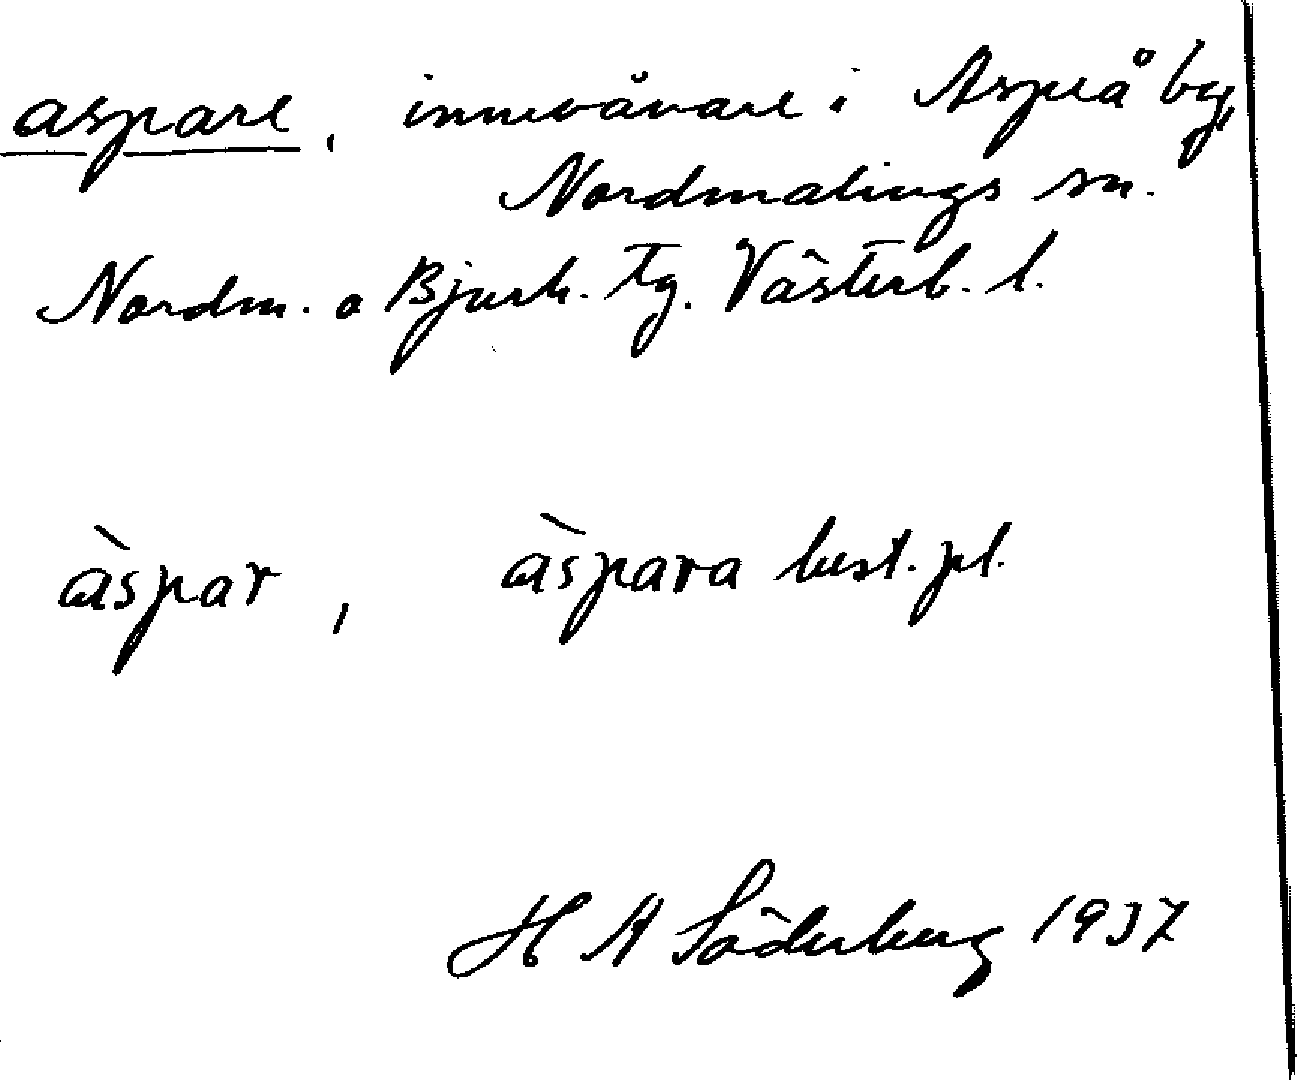 aspare, innevånare i Aspeå by,
Nordmalings sn.
Nordm. o Bjurh. tg. Västerb. l.
àspar, àspara best. pl.
H A Söderberg 1937